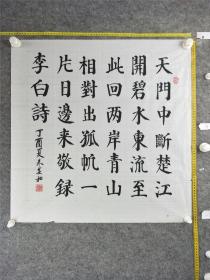 天門中斷楚江
開碧水東流至
此回两岸青山
相對出孤帆一
片日邊来敬録
李白詩
丁酉夏天